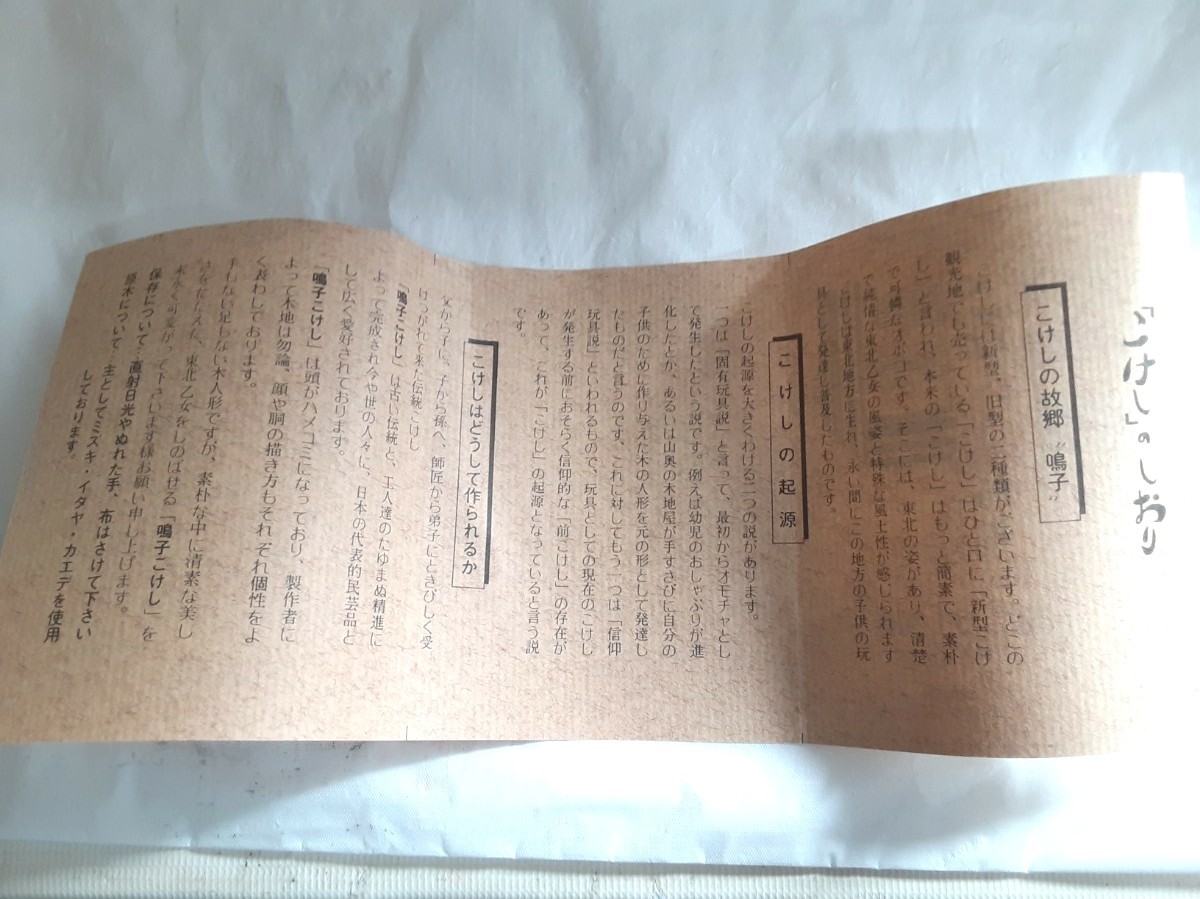 「こけし」のしおり
こけしの故郷“鳴子”
こけしには新型、旧型の二種類がございます。どこの
観光地でも売っている「こけし」はひと口に「新型こけ
し」と言われ、本来の「こけし」はもっと簡素で、素朴
で可憐なオボコです。そこには、東北の姿があり、清楚
で純情な東北乙女の風姿と特殊な風土性が感じられます
こけしは東北地方に生れ、永い間にこの地方の子供の玩
具として発達し普及したものです。
こけしの起源
こけしの起源を大きくわける二つの説があります。
一つは「固有玩具説」と言って、最初からオモチャとし
て発生したという説です。例えば幼児のおしゃぶりが進
化したとか、あるいは山奥の木地屋が手すさびに自分の
子供のために作り与えた木の人形を元の形として発達し
たものだと言うのです。これに対してもう一つは「信仰
玩具説」といわれるもので、玩具としての現在のこけし
が発生する前におそらく信仰的な「前こけし」の存在が
あって、これが「こけし」の起源となっていると言う説
です。
こけしはどうして作られるか
父から子に、子から孫へ、師匠から弟子にときびしく受
けつがれて来た伝統こけし
「鳴子こけし」は古い伝統と、工人達のたゆまぬ精進に
よって完成され今や世の人々に、日本の代表的民芸品と
して広く愛好されております。
「鳴子こけし」は頭がハメコミになっており、製作者に
よって木地は勿論、顔や胴の描き方もそれぞれ個性をよ
く表わしております。
手もない足もない木人形ですが、素朴な中に清素な美し
さをたたえた、東北乙女をしのばせる「鳴子こけし」を
末永く可愛がって下さいます様お願い申し上げます。
保存について…直射日光やぬれた手、布はさけて下さい
原木について…主としてミズキ・イタヤ・カエデを使用
しております。